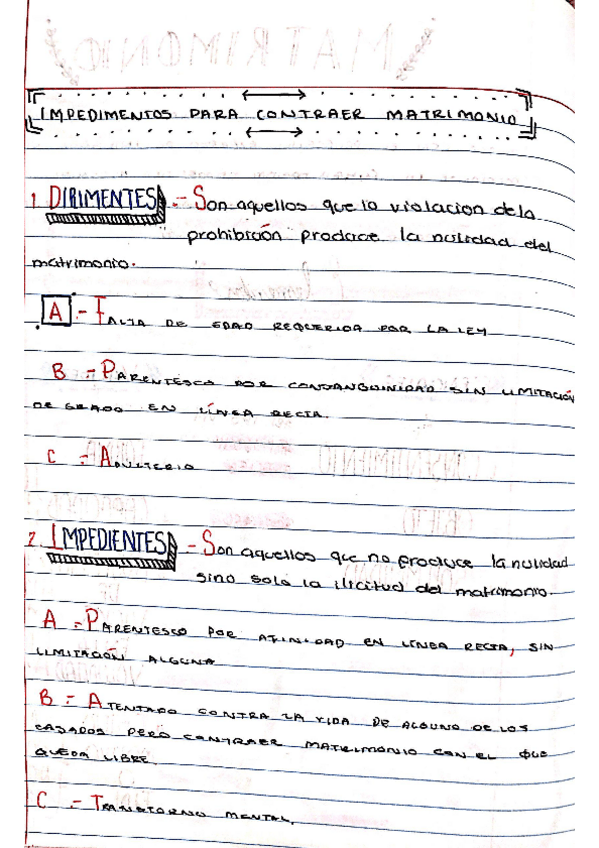 IMPEDIMENTOS PARA CONTRAER MATRIMONIO
1. DIRIMENTES.- Son aquellos que la violacion dela
prohibición produce la nulidad del
matrimonio.
A.- FALTA DE EDAD REQUERIDA POR LA LEY
B.- PARENTESCO POR CONSANGUINIDAD SIN LIMITACIÓN
DE GRADO EN LÍNEA RECTA.
C.- ADULTERIO
2. IMPEDIENTES.- Son aquellos que no produce la nulidad
sino solo la ilicitud del matrimonio.
A.- PARENTESCO POR AFINIDAD EN LÍNEA RECTA, SIN
LIMITACIÓN ALGUNA
B.- ATENTADO CONTRA LA VIDA DE ALGUNO DE LOS
CASADOS PERO CONTRAER MATRIMONIO CON EL QUE
QUEDA LIBRE.
C.- TRANSTORNO MENTAL.